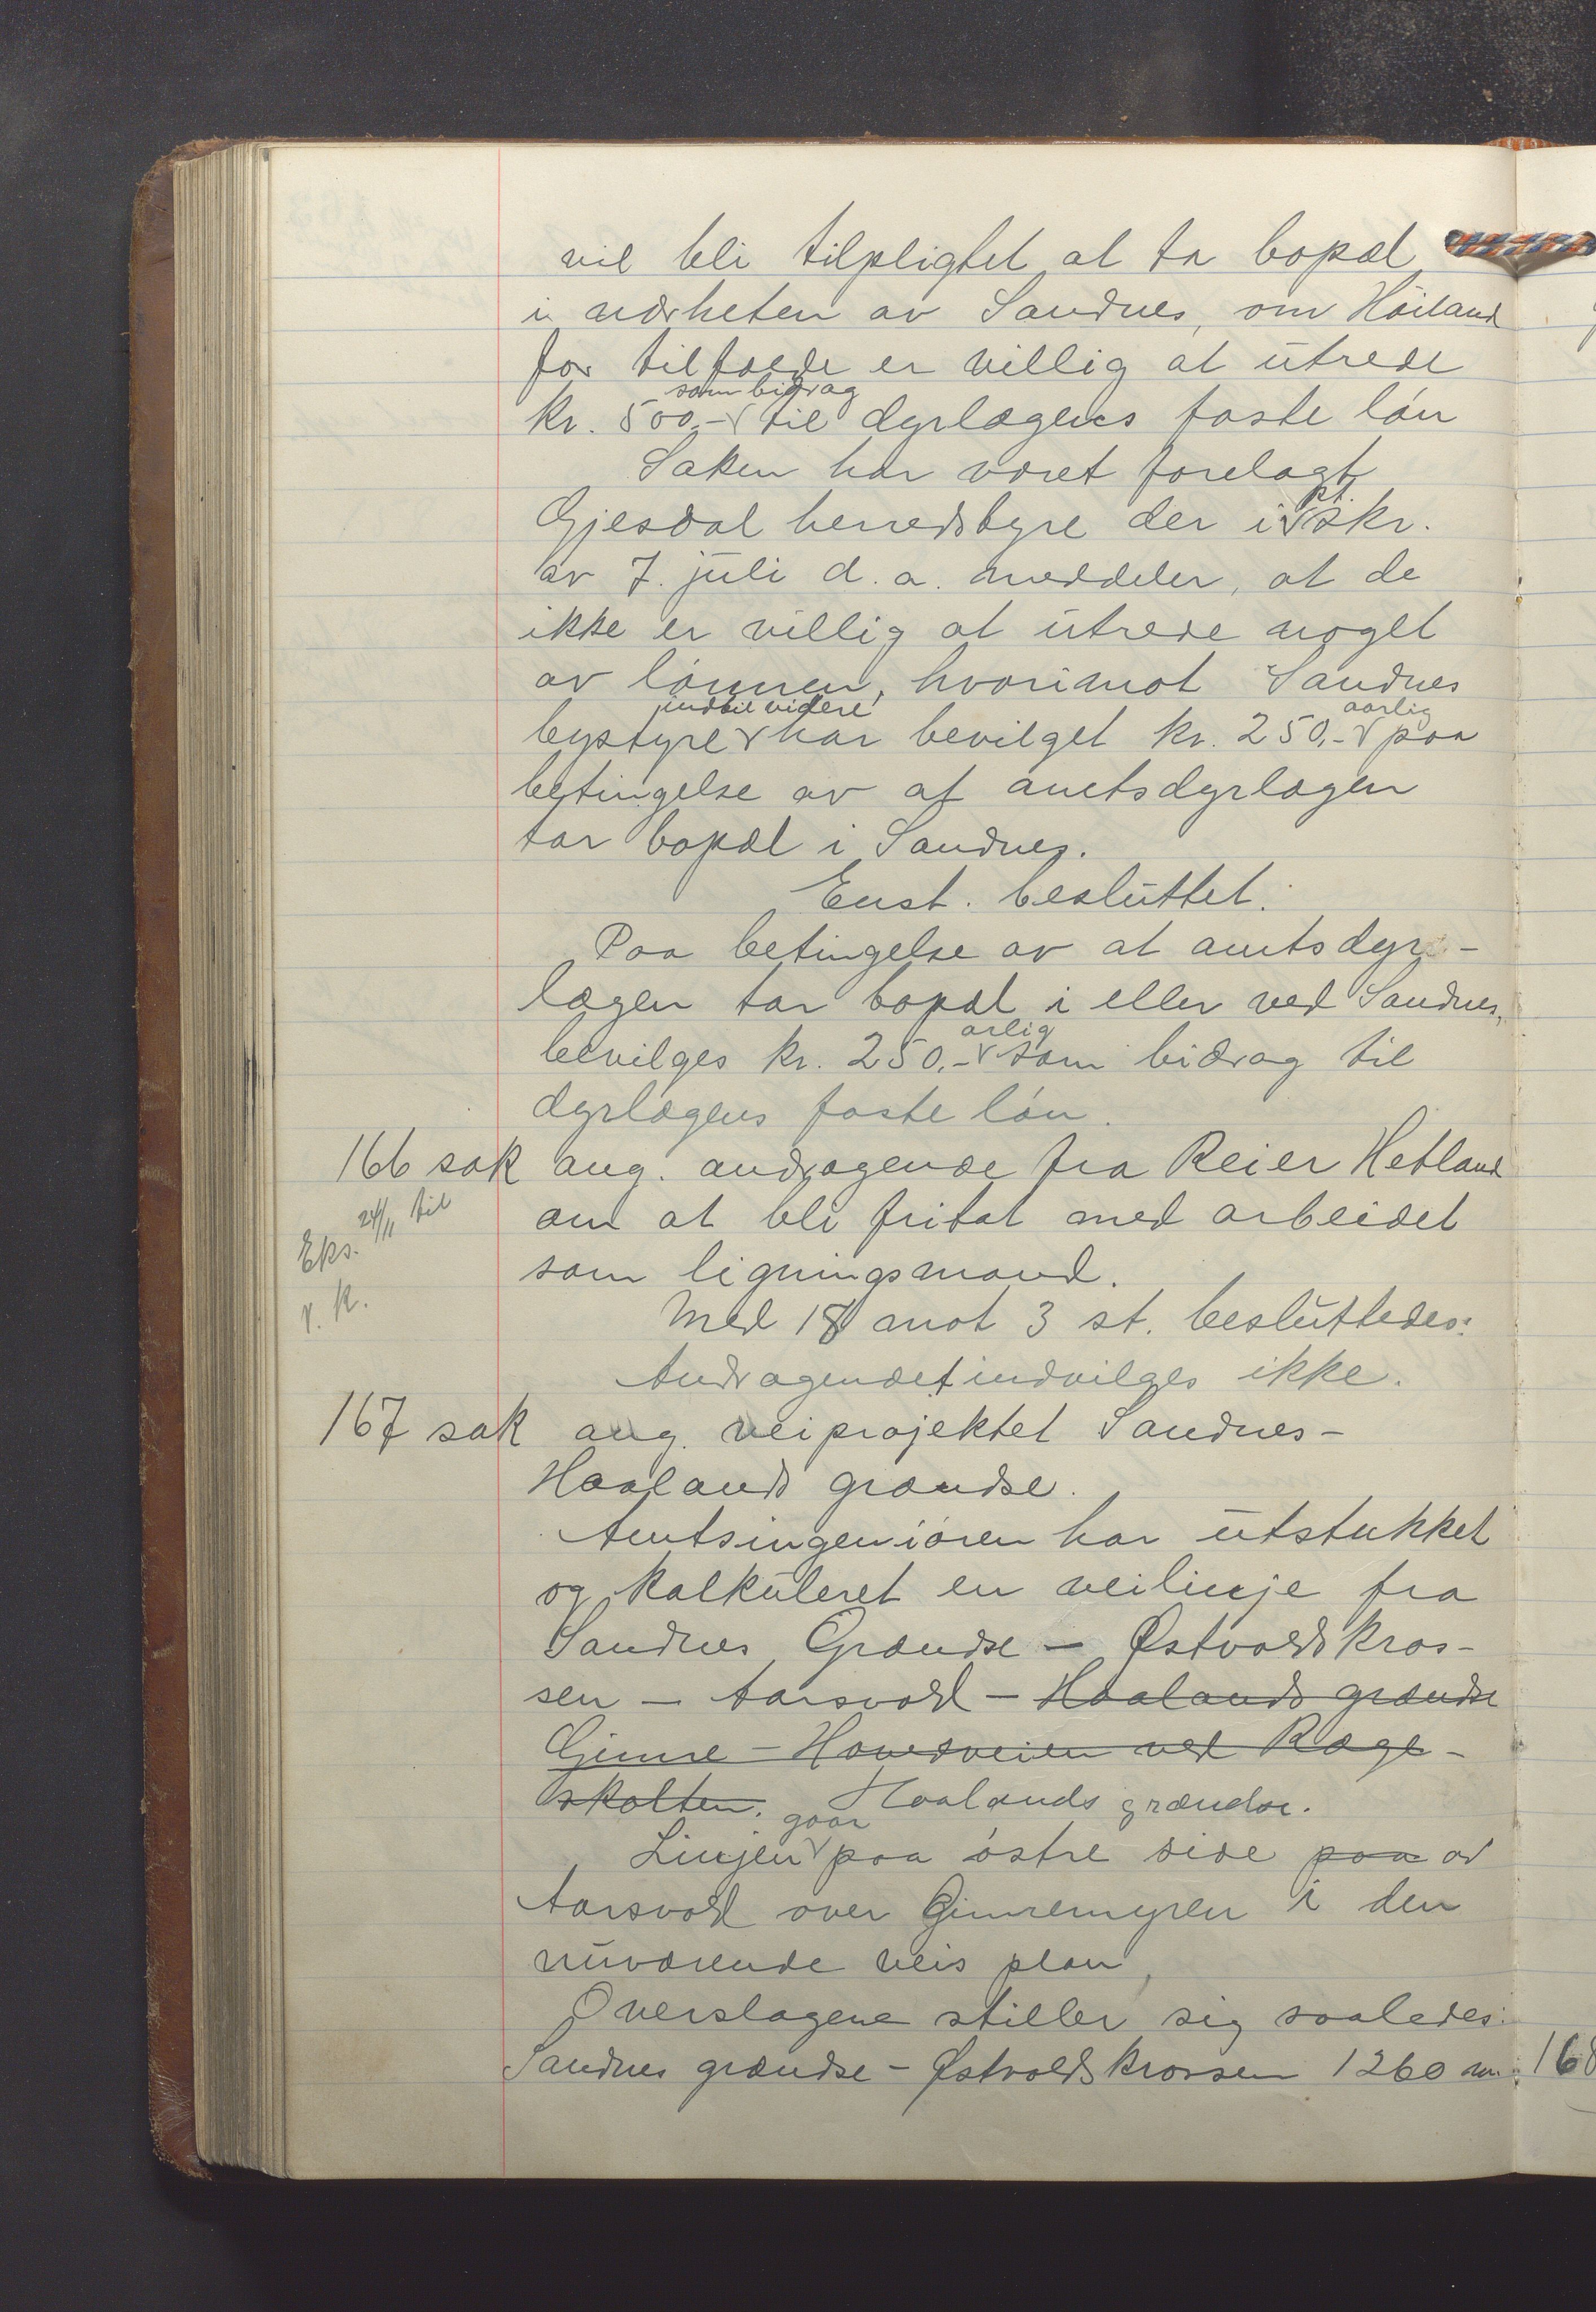 vil bli tilpligtet at ta bopæl
i nærheten av Sandnes, om Höiland
for tilfælde er villig at utrede
kr. 500,- som bidrag til dyrlægens faste lön
Saken har været forelagt
Gjesdal herredstyre der i pt. skr.
av 7. juli d. a. meddeler, at de
ikke er villig at utrede noget
av lönnen, hvorimot Sandnes
bystyre indtil videre har bevilget kr. 250,- aarlig paa
betingelse av at amtsdyrlægen
tar bopæl i Sandnes.
Enst. besluttet:
Paa betingelse av at amtsdyr-
lægen tar bopæl i eller ved Sandnes,
bevilges kr. 250,- arlig som bidrag til
dyrlægens faste lön.
166 sak ang. andragende fra Reier Hetland
om at bli fritat med arbeidet
som ligningsmand.
Eks. 24/11 til
v. k.
Med 18 mot 3 st. besluttedes:
Andragendet indvilges ikke.
167 sak ang. veiprojektet Sandnes-
Haalands grændse.
Amtsingeniören har utstukket
og kalkuleret en veilinje fra
Sandnes Grændse - Østvoldskros-
sen - Aarsvold - Haalands grændse
Gimre - Hovedveien ved Ræge-
skolten. Haalands grændse.
Linjen gaar paa östre side paa av
Aarsvold over Gimremyren i den
nuværende veis plan,
Overslagene stiller sig saaledes:
Sandnes grændse - Østvoldskrossen 1260 m.
168